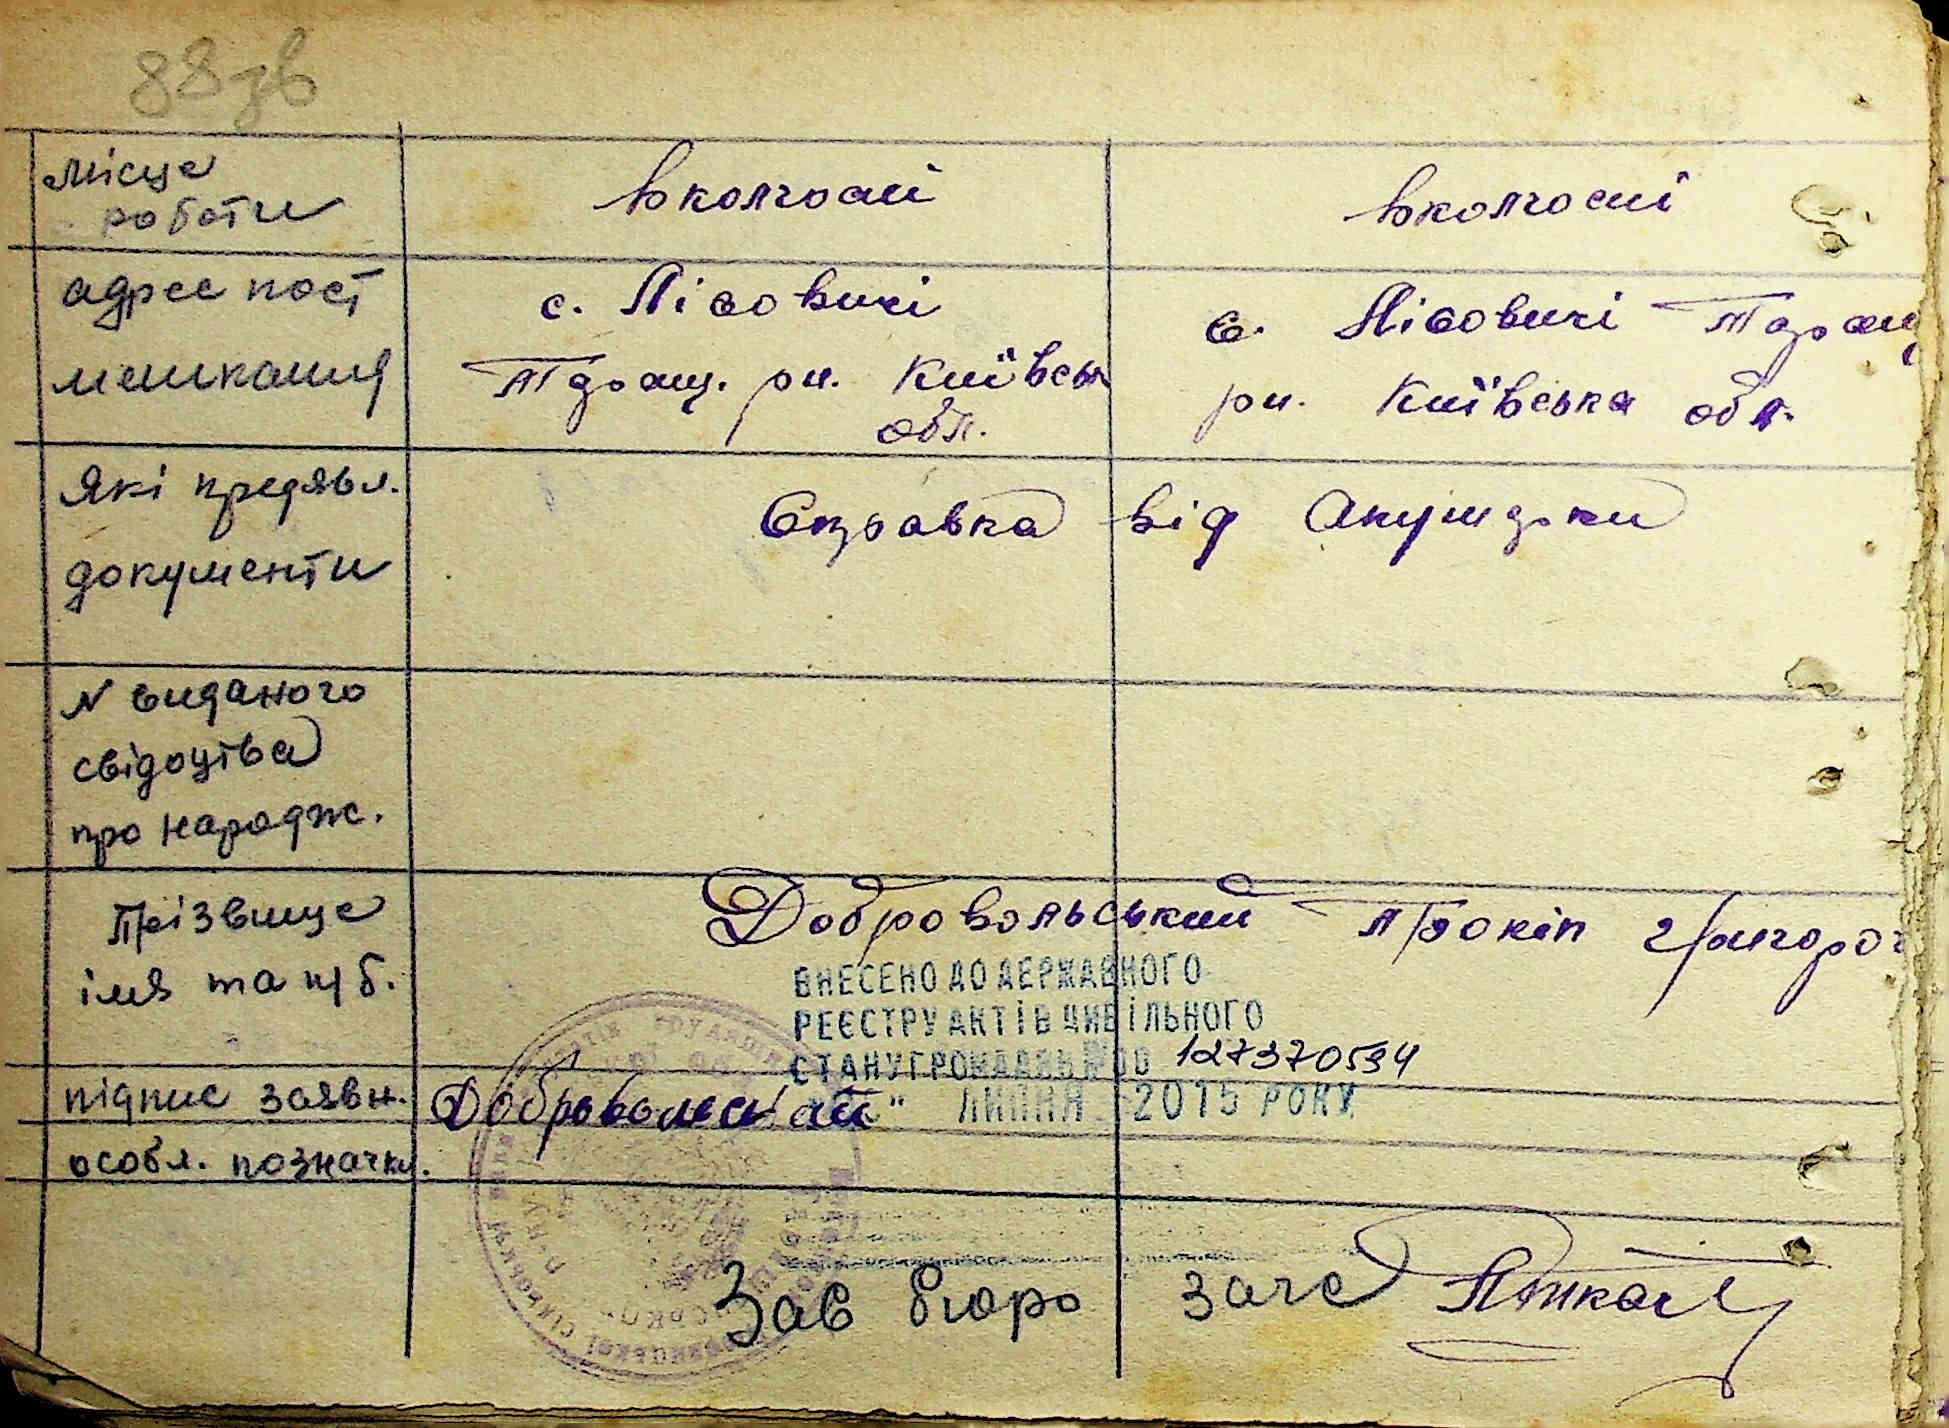 88зв
місце роботи
в колгоспі
в колгоспі
адрес пост
мешкання
с. Лісовичі
Таращ. рн. Київськ
обл.
с. Лісовичі Таращ
рн. Київська обл.
які предявл.
документи
Справка від Акушерки
N виданого
свідоцтва
про народж.
Прізвище
імя та п/б.
Добровольський Прокіп Григоров
ВНЕСЕНО ДО ДЕРЖАВНОГО
РЕЄСТРУ АКТІВ ЦИВІЛЬНОГО
СТАНУ ГРОМАДЯН № 00 127370594
ЛИПНЯ 2015 РОКУ
підпис заявн.
особл. позначки.
Зав бюро загс